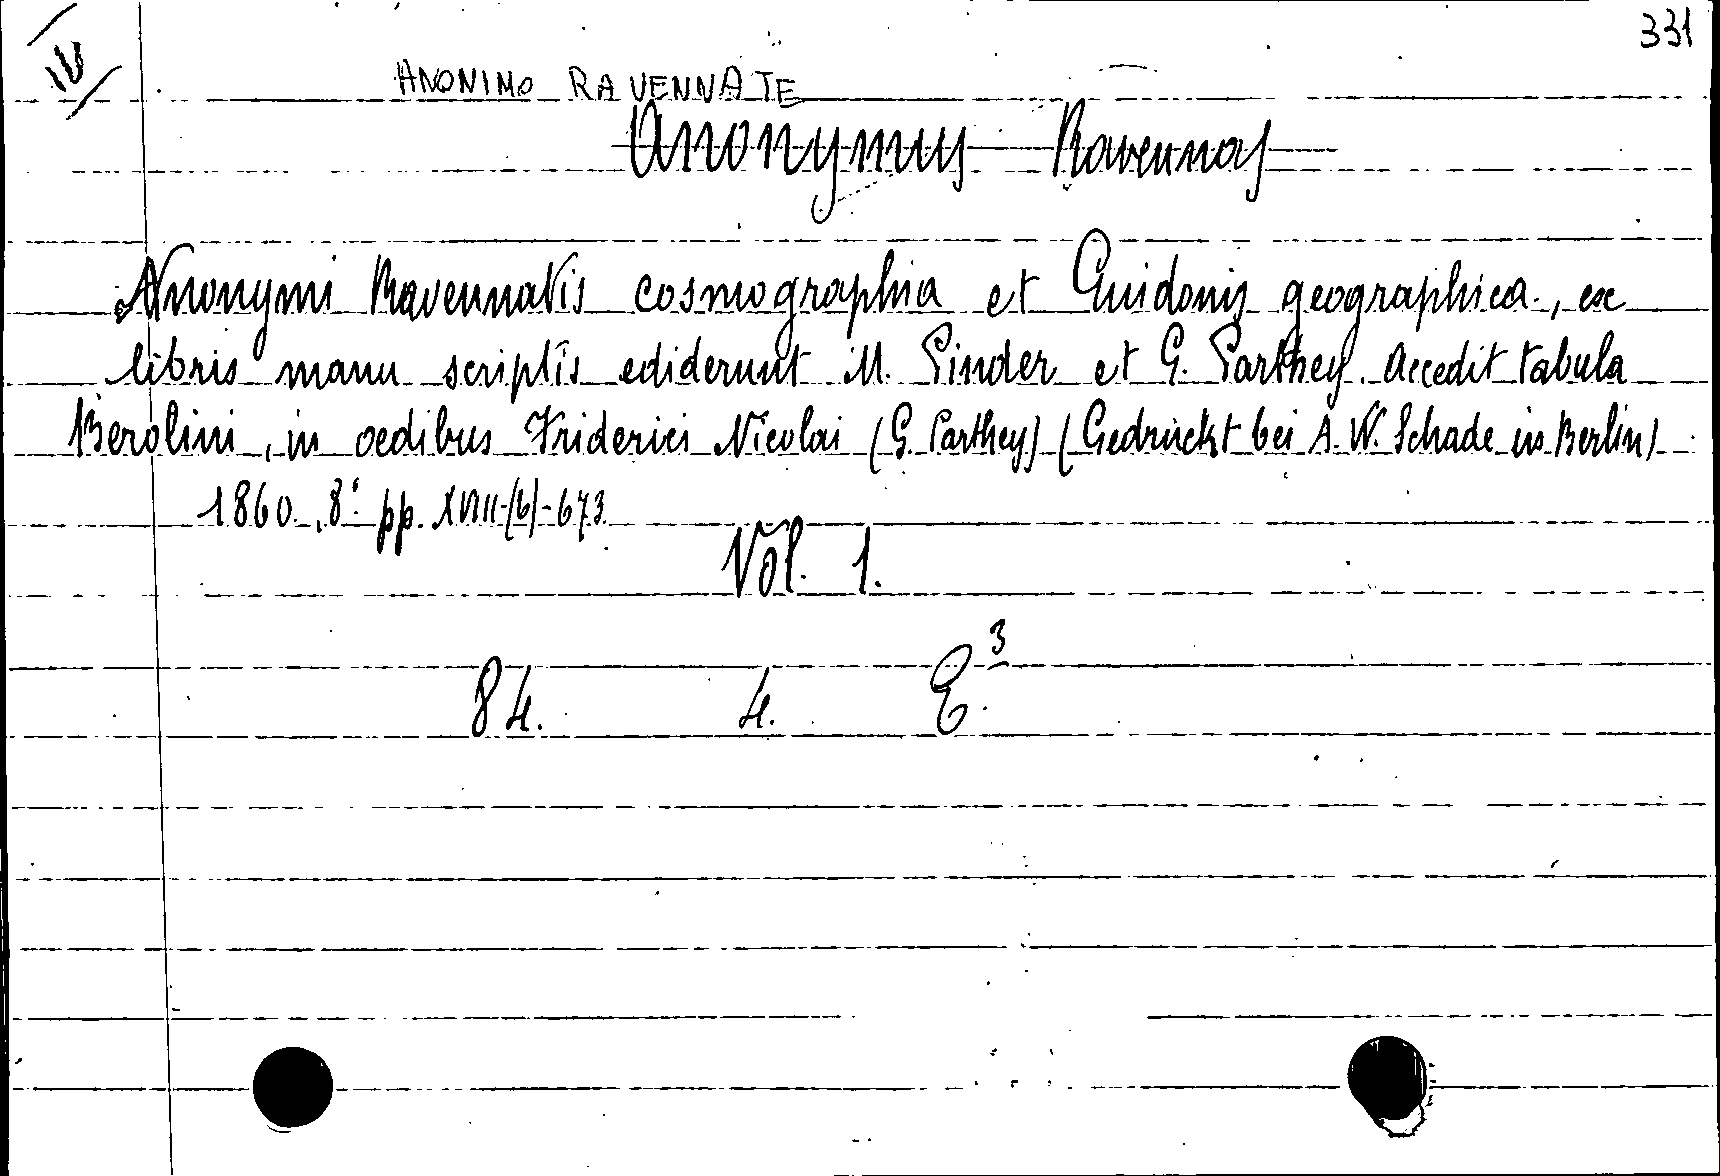 331
IV
ANONIMO RAVENNATE
Anonymus Ravennas
Anonymi Ravennatis cosmographia et Guidonis geographica, ex
libris manu scriptis ediderunt M. Pinder et G. Parthey. Accedit tabula
Berolini, in aedibus Friderici Nicolai (G. Parthey) (Gedruckt bei A. W. Schade in Berlin)
1860, 8° pp. XVIII-(6)-673
Vol. 1.
84. 4. E.³